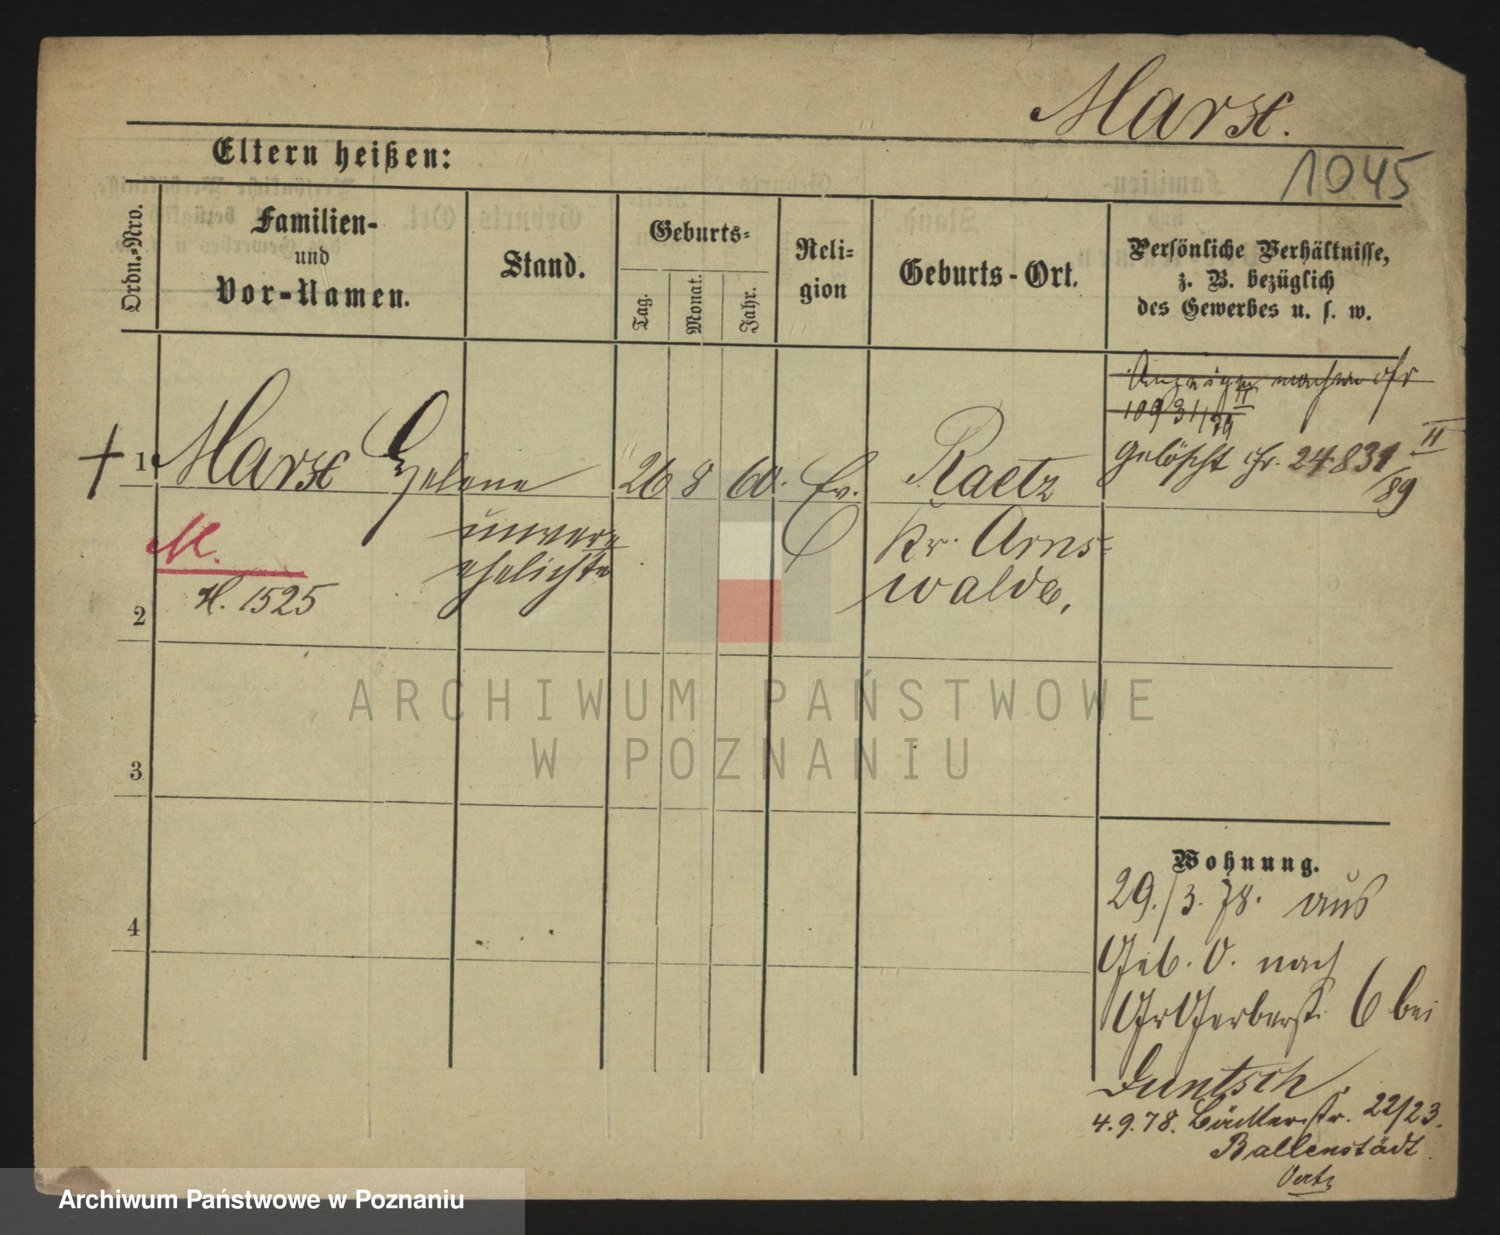 Marx.
1045
Eltern heißen:
Ordn.-Nro.
Familien-
und
Vor-Namen.
Stand.
Geburts-
Tag.
Monat.
Jahr.
Reli-
gion
Geburts-Ort.
Persönliche Verhältnisse,
z. B. bezüglich
des Gewerbes u. s. w.
1
Marx Helene
unvere
ehelichte
26 8 60.
Ev.
Raetz
Kr. Arns-
walde,
109 31/79 II
gelöscht fr. 24.831 II/89
M.
H. 1525
2
3
4
Wohnung.
29./3. 78. aus
Geb. O. nach
Gr Gerberstr. 6 bei
Duntsch.
4.9.78. Bäckerstr. 22/23.
Ballenstädt.
ARCHIWUM PAŃSTWOWE
W POZNANIU
Archiwum Państwowe w Poznaniu